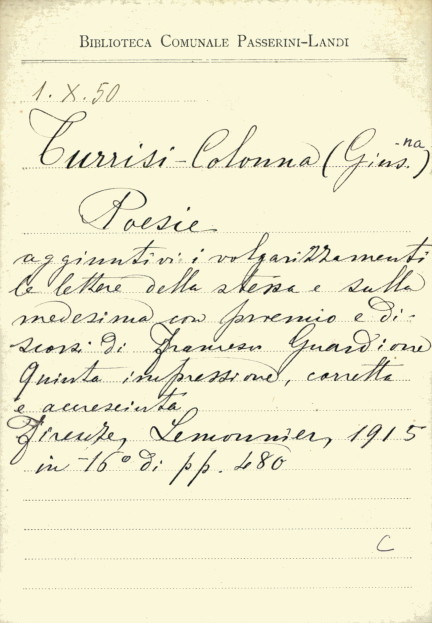 BIBLIOTECA COMUNALE PASSERINI-LANDI
1. X. 50
Turrisi-Colonna (Gius.na)
Poesie
aggiuntivi i volgarizzamenti
le lettere della stessa e sulla
medesima con proemio e di-
scorsi di Francesco Guardione
Quinta impressione, corretta
e accresciuta
Firenze, Lemonnier, 1915
in-16° di pp. 480
C